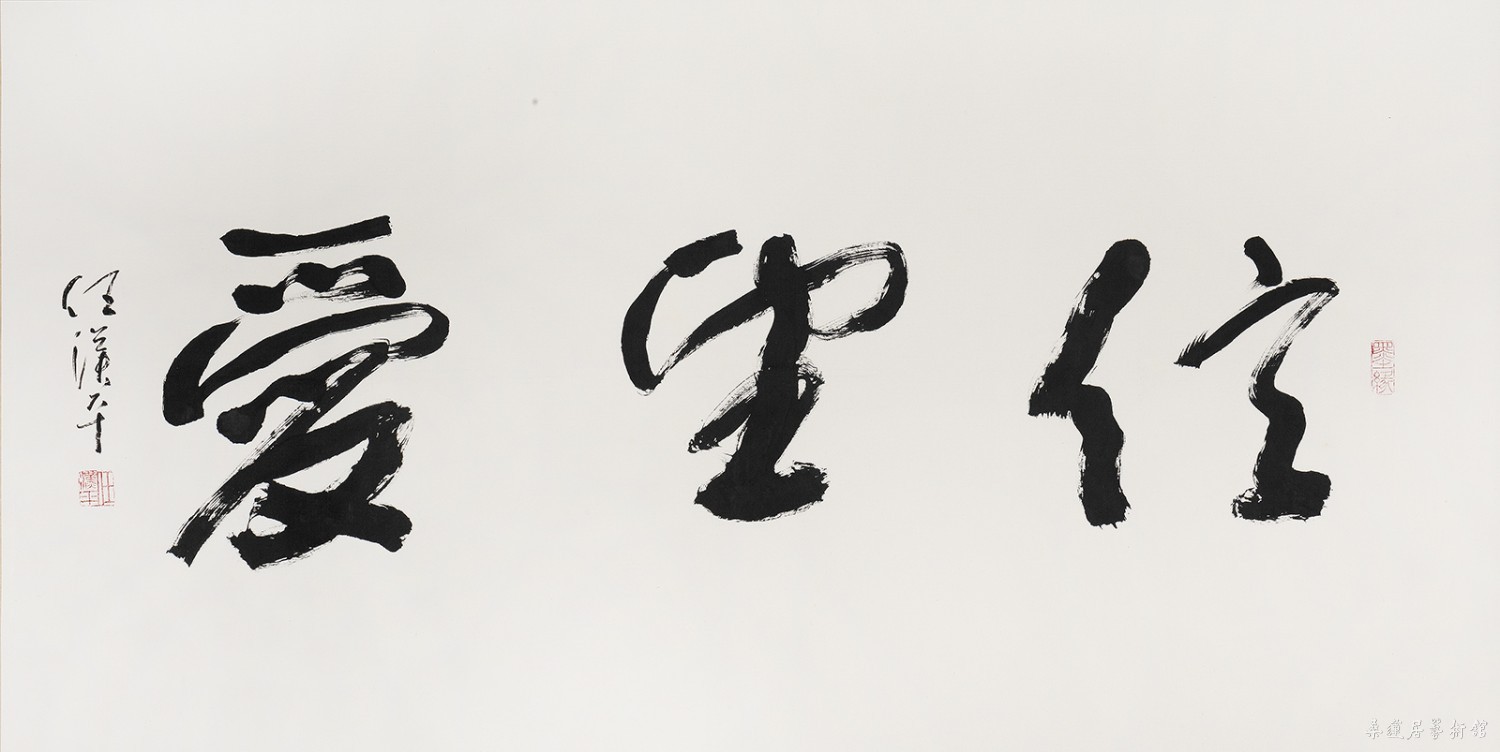 信望愛
任漢平
桑蓮居藝術館